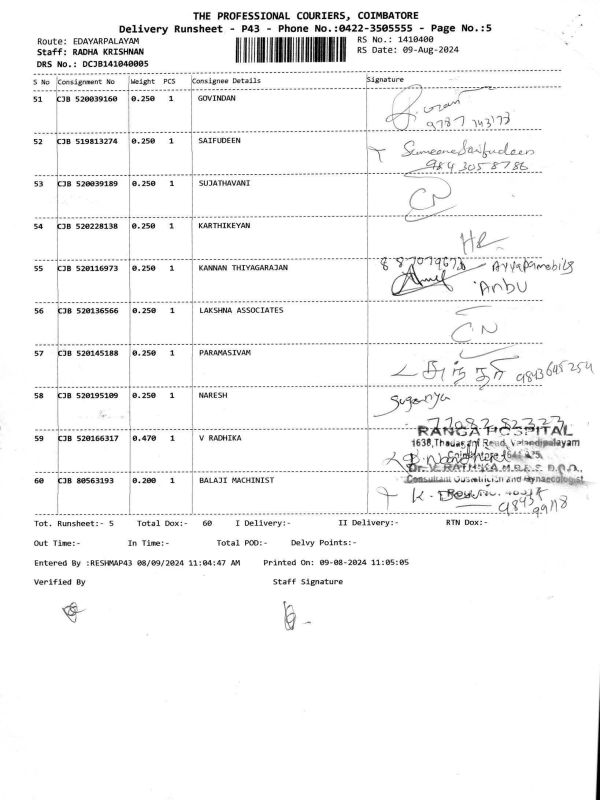 THE PROFESSIONAL COURIERS, COIMBATORE
Delivery Runsheet - P43 - Phone No.:0422-3505555 - Page No.:5
Route: EDAYARPALAYAM
RS No.: 1410400
Staff: RADHA KRISHNAN
RS Date: 09-Aug-2024
DRS No.: DCJB141040005
S No Consignment No Weight PCS Consignee Details Signature
51 CJB 520039160 0.250 1 GOVINDAN
52 CJB 519813274 0.250 1 SAIFUDEEN
9843058786
53 CJB 520039189 0.250 1 SUJATHAVANI
CN
54 CJB 520228138 0.250 1 KARTHIKEYAN
55 CJB 520116973 0.250 1 KANNAN THIYAGARAJAN
Anbu
56 CJB 520136566 0.250 1 LAKSHNA ASSOCIATES
CN
57 CJB 520145188 0.250 1 PARAMASIVAM
9843645254
58 CJB 520195109 0.250 1 NARESH
Suganya
RANGA HOSPITAL
59 CJB 520166317 0.470 1 V RADHIKA
1638,Thadagam Road, Velandipalayam
Consultant Obstetrician and Gynaecologist
60 CJB 80563193 0.200 1 BALAJI MACHINIST
Tot. Runsheet:- 5 Total Dox:- 60 I Delivery:- II Delivery:- RTN Dox:-
Out Time:- In Time:- Total POD:- Delvy Points:-
Entered By :RESHMAP43 08/09/2024 11:04:47 AM Printed On: 09-08-2024 11:05:05
Verified By Staff Signature